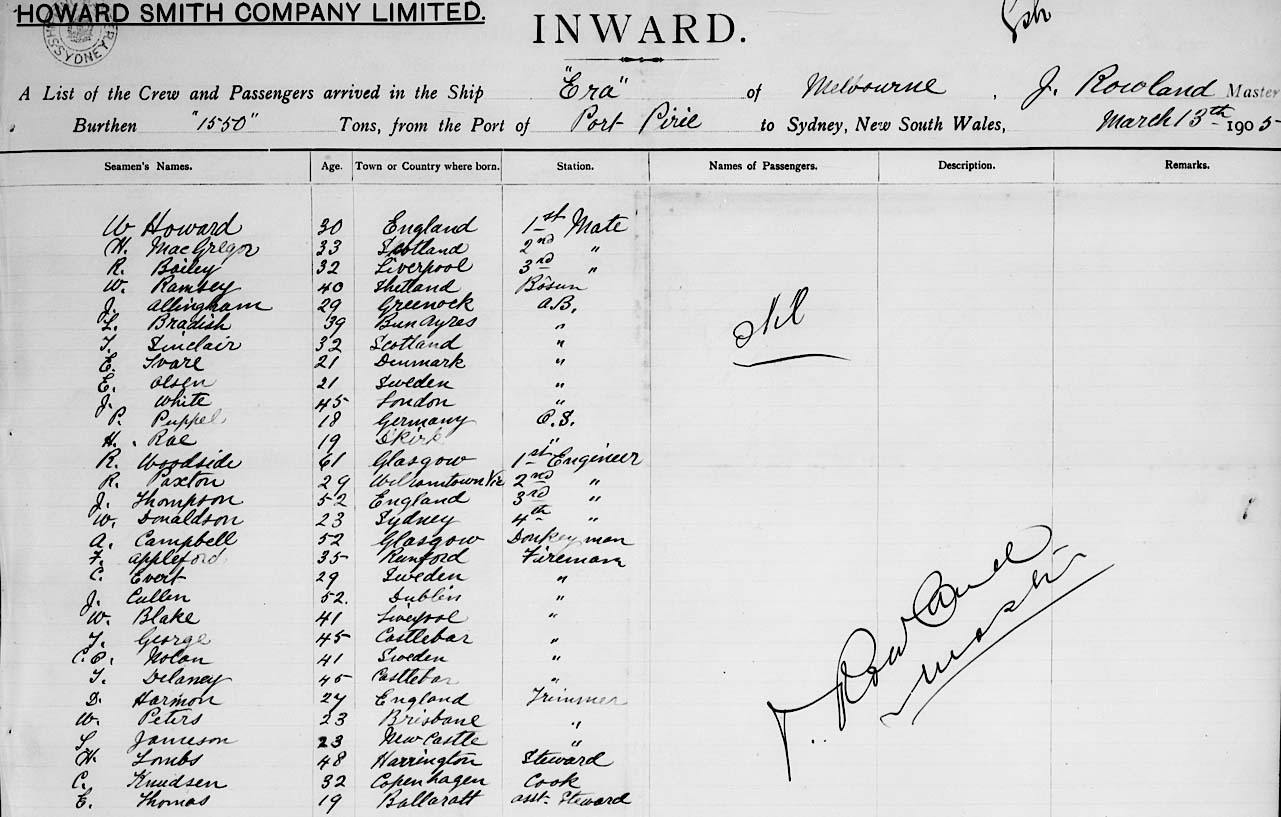 HOWARD SMITH COMPANY LIMITED.
INWARD.
A List of the Crew and Passengers arrived in the Ship "Era" of Melbourne, J. Rowland Master
Burthen "1550" Tons, from the Port of Port Pirie to Sydney, New South Wales, March 13th 1905
Seamen's Names. Age. Town or Country where born. Station. Names of Passengers. Description. Remarks.
W Howard 30 England 1st Mate
H. MacGregor 33 Scotland 2nd "
R. Bailey 32 Liverpool 3rd "
W. Ramsey 40 Shetland Bosun
J. Allingham 29 Greenock A.B.
L. Bradish 39 Bun Ayres "
T. Sinclair 32 Scotland "
Nil
E. Ivare 21 Denmark "
E. Olsen 21 Sweden "
J. White 45 London "
P. Puppel 18 Germany O.S.
H. Rae 19 "
R. Woodside 61 Glasgow 1st Engineer
R. Paxton 29 Williamtown Vic 2nd "
J. Thompson 52 England 3rd "
W. Donaldson 23 Sydney 4th "
A. Campbell 52 Glasgow Donkeyman
F. Appleford 35 Runford Fireman
C. Evert 29 Sweden "
J. Cullen 52. Dublin "
W. Blake 41 Livepool "
T. George 45 Castlebar "
C.E. Nolan 41 Sweden "
T. Delaney 45 Castlebar "
D. Harmon 27 England Trimmer
W. Peters 23 Brisbane "
S. Jameson 23 New Castle "
H. Lombs 48 Harrington Steward
C. Knudsen 32 Copenhagen Cook
E. Thomas 19 Ballaratt asst. Steward
J. Rowland
Master